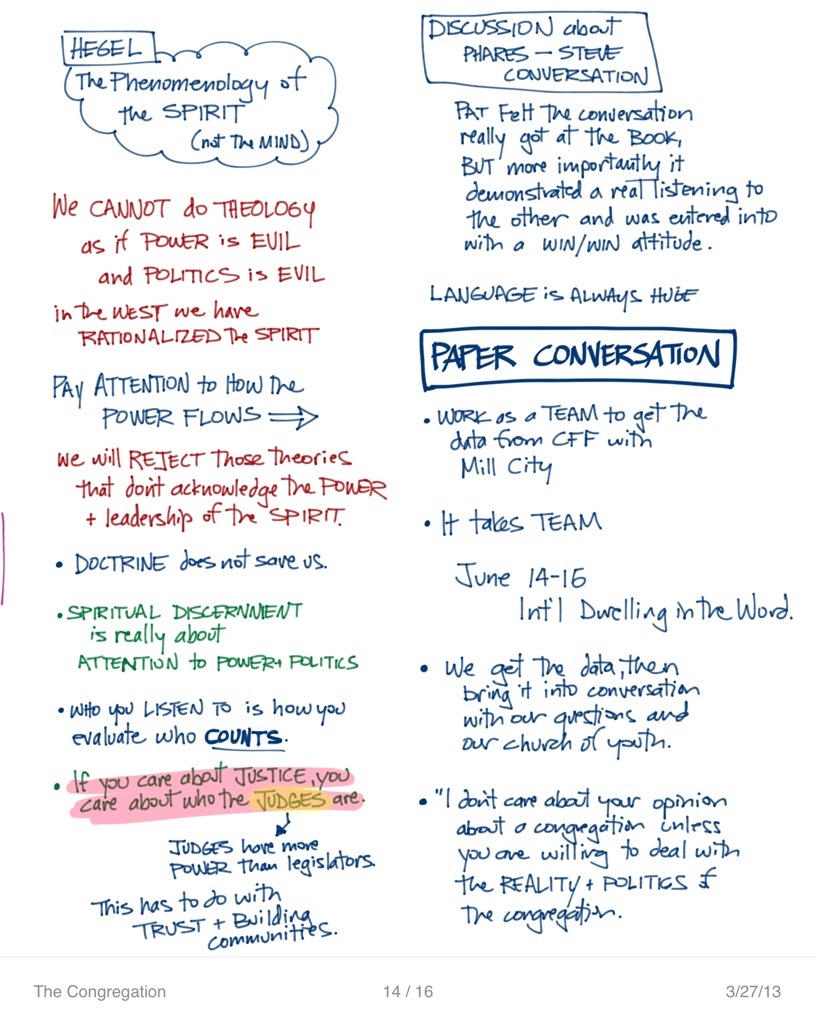 HEGEL
(The Phenomenology of
the SPIRIT
(not The MIND)
We CANNOT do THEOLOGY
as if POWER is EVIL
and POLITICS is EVIL
in the WEST we have
RATIONALIZED the SPIRIT
PAY ATTENTION to How the
POWER FLOWS ⇒
we will REJECT Those theories
that don't acknowledge the POWER
+ leadership of the SPIRIT.
• DOCTRINE does not save us.
• SPIRITUAL DISCERNMENT
is really about
ATTENTION to POWER + POLITICS
• WHO you LISTEN TO is how you
evaluate who COUNTS.
• If you care about JUSTICE, you
care about who the JUDGES are.
JUDGES have more
POWER than legislators.
This has to do with
TRUST + Building
communities.
DISCUSSION about
PHARES – STEVE
CONVERSATION
PAT Felt The conversation
really got at the BOOK,
BUT more importantly it
demonstrated a real listening to
the other and was entered into
with a WIN/WIN attitude.
LANGUAGE is ALWAYS HUGE
PAPER CONVERSATION
• WORK as a TEAM to get the
data from CFF with
Mill City
• It takes TEAM
June 14-16
Int'l Dwelling in the Word.
• We get the data, then
bring it into conversation
with our questions and
our church of youth.
• "I don't care about your opinion
about a congregation unless
you are willing to deal with
the REALITY + POLITICS of
The congregation.
The Congregation
14 / 16
3/27/13